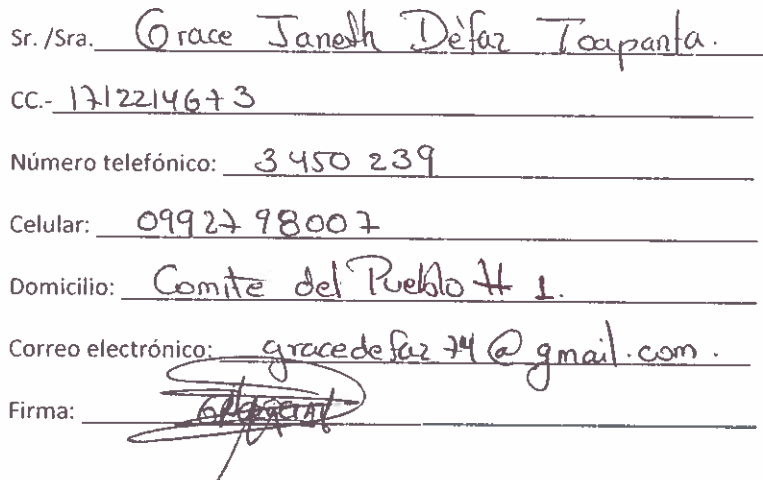 Sr. /Sra. Grace Janeth Dèfaz Toapanta.
CC.- 1712214673
Número telefónico: 3450 239
Celular: 09927 98007
Domicilio: Comite del Pueblo # 1.
Correo electrónico: gracedefaz 74@gmail.com.
Firma: